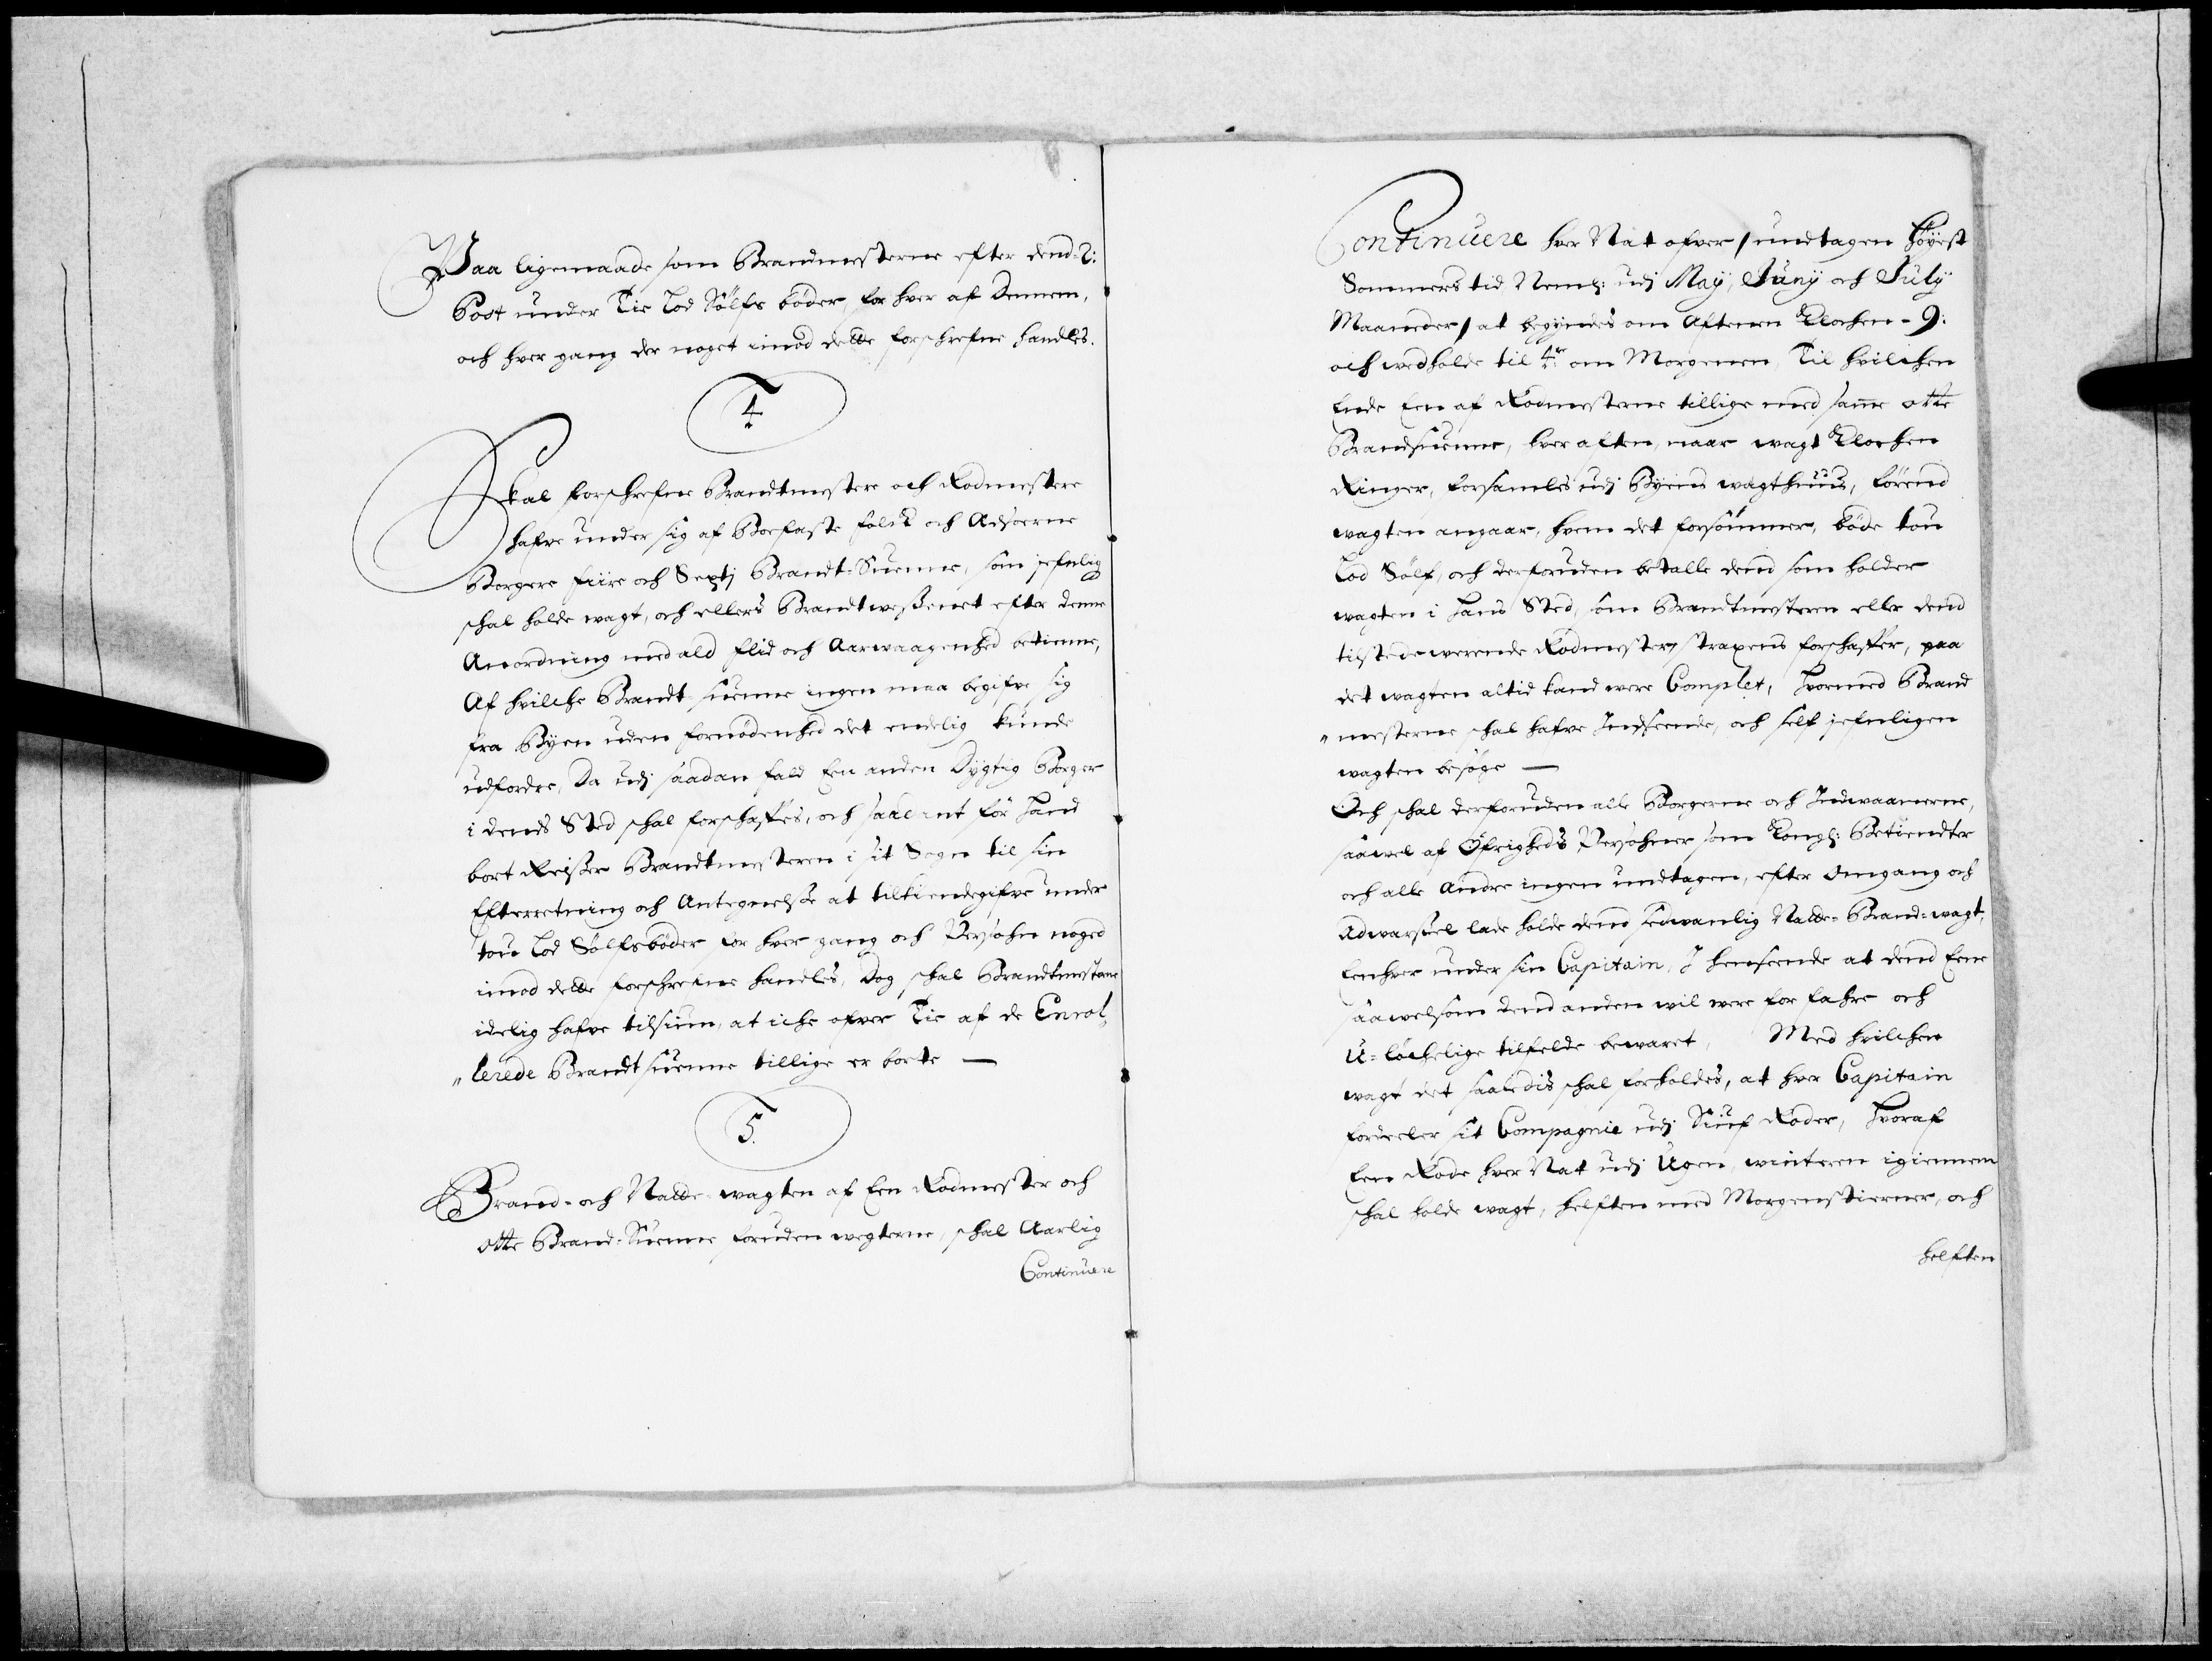 Paa ligemaade som Brandmesterne efter dend 2:
Post under Tie Lod Sølfs bøder, for hver af Dennem,
och hver gang der noget imod dette forschrefne handles.
4
Skal forschrefne Brandtmestere och Rodmestere
hafve under sig af Boefaste folck och Adserne
Borgere fiire och Sextj Brandt-Suenne, som jefnlig
schal holde wagt, och ellers Brandtweßenet efter denne
Anordning med ald flid och Aarwaagenhed betienne,
Af hvilche Brandt-suenne ingen maa begifve sig
fra Byen uden fornødenhed det endelig kunde
udfordre, Da udj saadan fald Een anden Dygtig Borger
i dends Sted schal forschaffes, och saadant før Hand
bort Reißer Brandtmesteren i sit Sogn til sin
Efterretning och Antegnelße at tilkiendegifve under
tou Lod Sølfs bøder for hver gang och Persohn noged
imod dette forschrefne handles, Dog schal Brandtmesterne
idelig hafve tilsiun, at iche ofver Tie af de Enrol„
„lerede Brandtsuenne tillige er borte —
5.
Brand- och Natte-wagten af Een Rodmester och
otte Brand-Suenne foruden wegterne, schal Aarlig
Continuere
Continuere hver Nat ofver / undtagen Høyest
Sommers tid Neml: udj Maÿ, Junÿ och Julÿ
Maaneder / at begyndes om Aftenen Klochen - 9:
och wedholde til 4re om Morgenen, Til hvilchen
Ende Een af Rodmesterne tillige med samme otte
Brandsuenne, hver aften, naar wagt Klochen
Ringer, forsamles udj Byens wagthuus, førend
wagten angaar, hvem det forsømmer, bøde tou
Lod Sølf, och derforuden betalle dend som holder
wagten i Hans Sted, som Brandtmesteren eller dend
tilstedewerende Rodmester, straxens forschaffer, paa
det wagten altid kand were Complet, Hvormed Brand
„mesterne schal hafve Indseende, och self jefnligen
wagten besøge —
Och schal derforuden alle Borgerne och Indwaanerne,
saawel af Øfrigheds Persohner som Kongl: Betiendter
och alle Andre ingen undtagen, efter Omgang och
Adwarsel lade holde dend sedwanlig Natte-Brand-wagt,
Eenhver under sin Capitain, I henseende at dend Eene
saawelsom dend anden wil were for fahre och
U-løchelige tilfelde bewaret, Med hvilchen
wagt det saaledis schal forholdes, at hver Capitain
fordeeler sit Compagnie udj Siuf Roder, Hvoraf
Een Rode hver Nat udj Ugen, winteren igiennem
schal holde wagt, helften med Morgenstierner, och
helften